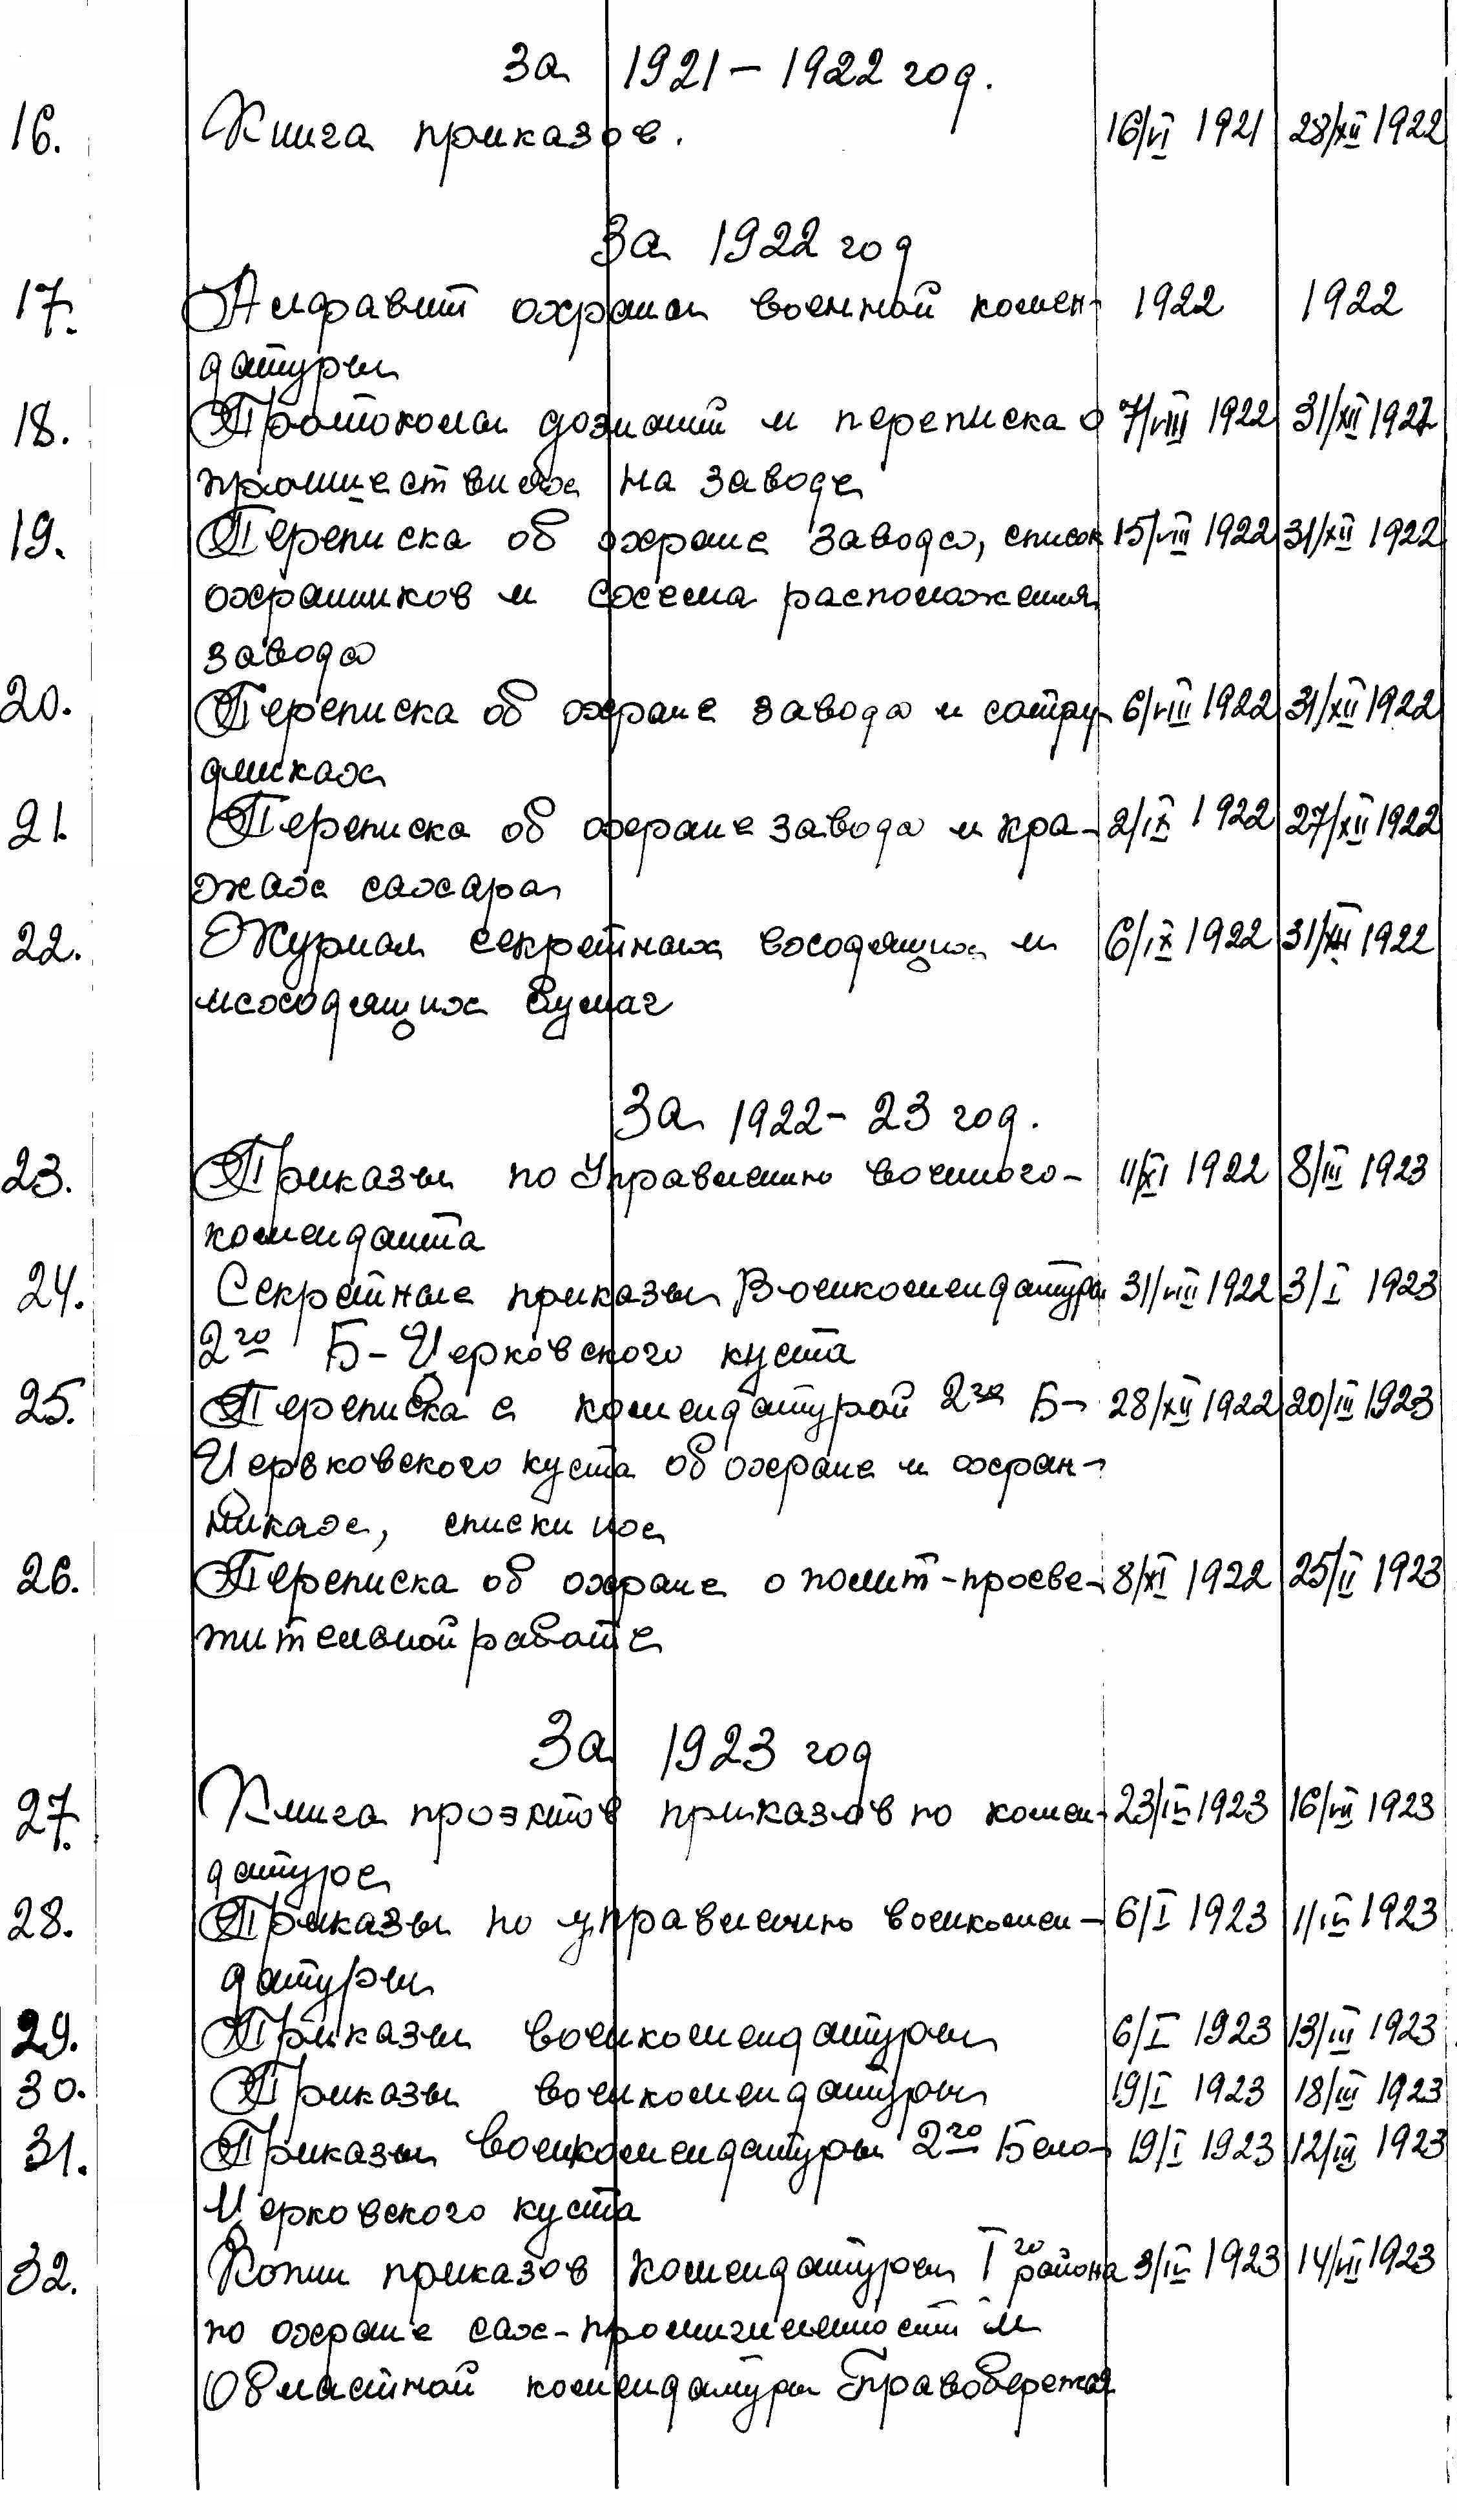 За 1921 – 1922 год.
16. Книга приказов. 16/VI 1921 28/XII 1922
За 1922 год
17. Алфавит охраны военной комен- 1922 1922
датуры
18. Протоколы дознаний и переписка о 7/VIII 1922 31/XII 1922
проишествиях на заводе
19. Переписка об охране завода, список 15/VIII 1922 31/XII 1922
охранников и схема расположения
завода
20. Переписка об охране завода и сотру- 6/VIII 1922 31/XII 1922
дниках
21. Переписка об охране завода и кра- 2/IX 1922 27/XII 1922
жах сахара
22. Журнал секретных входящих и 6/IX 1922 31/XII 1922
исходящих бумаг
За 1922 – 23 год.
23. Приказы по Управлению военного- 11/XI 1922 8/III 1923
коменданта
24. Секретные приказы Военкомендатуры 31/VIII 1922 3/I 1923
2го Б-Церковского куста
25. Переписка с комендатурой 2го Б- 28/XII 1922 20/III 1923
Церковского куста об охране и охран-
никах, списки их
26. Переписка об охране о полит-просве- 8/XI 1922 25/II 1923
тительной работе
За 1923 год
27. Книга проэктов приказов по комен- 23/IV 1923 16/VII 1923
датуре
28. Приказы по управлению военкомен- 6/I 1923 1/IV 1923
датуры
29. Приказы военкомендатуры 6/I 1923 13/III 1923
30. Приказы военкомендатуры 19/I 1923 18/III 1923
31. Приказы военкомендатуры 2го Бело- 19/I 1923 12/III 1923
Церковского куста
32. Копии приказов комендатуры I го района 3/IV 1923 14/VII 1923
по охране сах-промышленности и
Областной комендатуры Правобережья